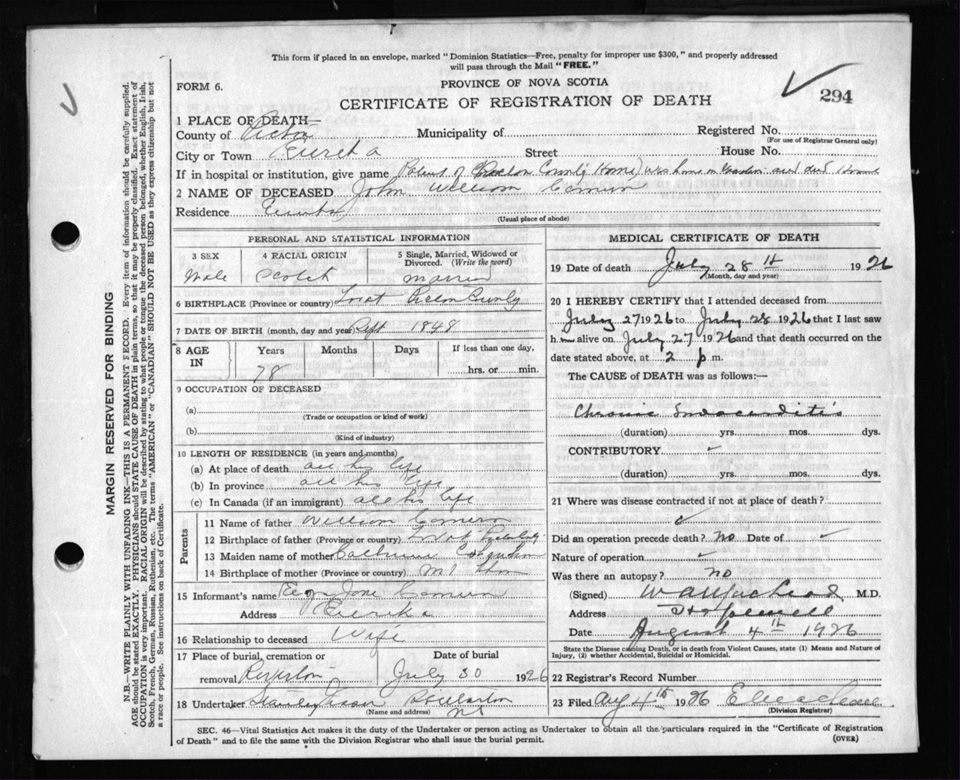 This form if placed in an envelope, marked "Dominion Statistics—Free, penalty for improper use $300," and properly addressed
will pass through the Mail "FREE."
FORM 6.
PROVINCE OF NOVA SCOTIA
CERTIFICATE OF REGISTRATION OF DEATH
294
1 PLACE OF DEATH—
County of Pictou Municipality of Registered No.
(For use of Registrar General only)
City or Town Eureka Street House No.
If in hospital or institution, give name Patient of County Home was home on
2 NAME OF DECEASED John William Cameron
Residence Eureka
(Usual place of abode)
PERSONAL AND STATISTICAL INFORMATION
3 SEX 4 RACIAL ORIGIN 5 Single, Married, Widowed or Divorced. (Write the word)
Male Scotch Married
6 BIRTHPLACE (Province or country) Pictou County
7 DATE OF BIRTH (month, day and year) Sept 1848
8 AGE IN Years Months Days If less than one day,
78 hrs. or min.
9 OCCUPATION OF DECEASED
(a)
(Trade or occupation or kind of work)
(b)
(Kind of industry)
10 LENGTH OF RESIDENCE (in years and months)
(a) At place of death all his life
(b) In province all his life
(c) In Canada (if an immigrant) all his life
Parents
11 Name of father William Cameron
12 Birthplace of father (Province or country)
13 Maiden name of mother
14 Birthplace of mother (Province or country) Mt Thom
15 Informant's name Jane Cameron
Address Eureka
16 Relationship to deceased Wife
17 Place of burial, cremation or Date of burial
removal Riverton July 30 1926
18 Undertaker Stellarton
(Name and address) NS
MEDICAL CERTIFICATE OF DEATH
19 Date of death July 28th 1926
(Month, day and year)
20 I HEREBY CERTIFY that I attended deceased from
July 27 1926 to July 28 1926 that I last saw
h im alive on July 27 1926 and that death occurred on the
date stated above, at 2 p m.
The CAUSE of DEATH was as follows:—
Chronic
(duration) yrs. mos. dys.
CONTRIBUTORY ✓
(duration) yrs. mos. dys.
21 Where was disease contracted if not at place of death?
✓
Did an operation precede death? No Date of ✓
Nature of operation ✓
Was there an autopsy? no
(Signed) M.D.
Address Hopewell
Date August 4th 1926
State the Disease causing Death, or in death from Violent Causes, state (1) Means and Nature of
Injury, (2) whether Accidental, Suicidal or Homicidal.
22 Registrar's Record Number
23 Filed Aug 4th 1926
(Division Registrar)
SEC. 46—Vital Statistics Act makes it the duty of the Undertaker or person acting as Undertaker to obtain all the particulars required in the "Certificate of Registration
of Death" and to file the same with the Division Registrar who shall issue the burial permit.
(OVER)
MARGIN RESERVED FOR BINDING
N.B.—WRITE PLAINLY WITH UNFADING INK—THIS IS A PERMANENT RECORD. Every item of information should be carefully supplied.
AGE should be stated EXACTLY. PHYSICIANS should STATE CAUSE OF DEATH in plain terms, so that it may be properly classified. Exact statement of
OCCUPATION is very important. RACIAL ORIGIN will be described by stating to what people or tongue the deceased person belonged, whether English, Irish,
Scotch, French, German, Russian, Ruthenian, etc. The terms "AMERICAN" or "CANADIAN" SHOULD NOT BE USED as they express citizenship but not
a race or people. See instructions on back of Certificate.